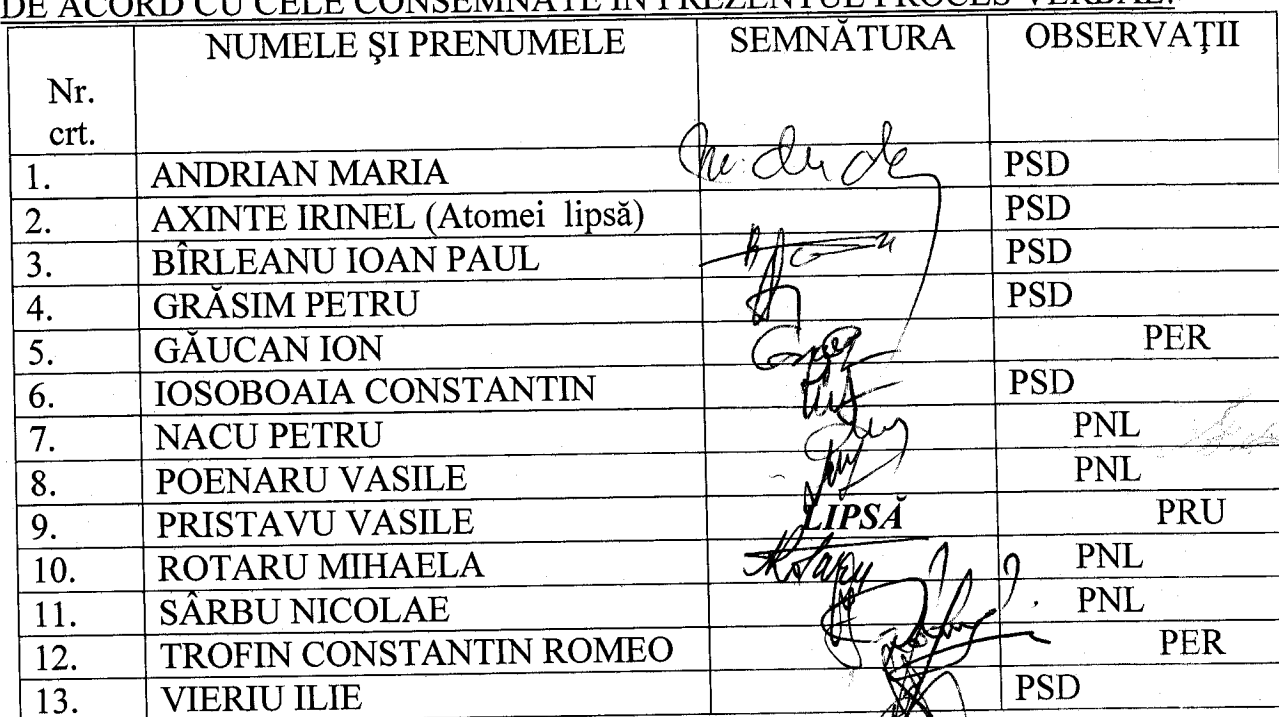 DE ACORD CU CELE CONSEMNATE ÎN PREZENTUL PROCES VERBAL:
Nr. crt. NUMELE ŞI PRENUMELE SEMNĂTURA OBSERVAŢII
1. ANDRIAN MARIA PSD
2. AXINTE IRINEL (Atomei lipsă) PSD
3. BÎRLEANU IOAN PAUL PSD
4. GRĂSIM PETRU PSD
5. GĂUCAN ION PER
6. IOSOBOAIA CONSTANTIN PSD
7. NACU PETRU PNL
8. POENARU VASILE PNL
9. PRISTAVU VASILE LIPSĂ PRU
10. ROTARU MIHAELA PNL
11. SÂRBU NICOLAE PNL
12. TROFIN CONSTANTIN ROMEO PER
13. VIERIU ILIE PSD